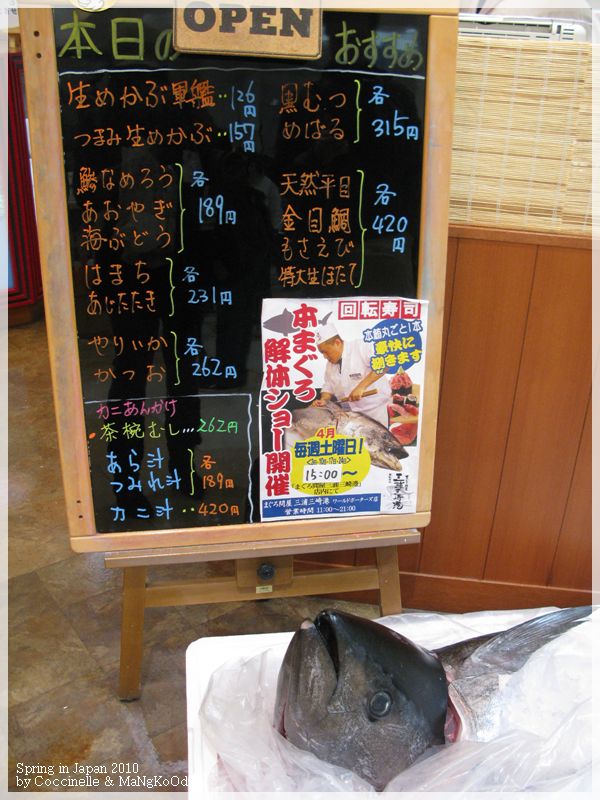 OPEN
本日の おすすめ
生めかぶ軍艦‥126円
つまみ生めかぶ‥157円
鯵なめろう
あおやぎ
海ぶどう
各189円
はまち
あじたたき
各231円
やりいか
かつお
各262円
カニあんかけ
・茶椀むし…262円
あら汁
つみれ汁
各189円
カニ汁‥420円
黒むつ
めばる
各315円
天然平目
金目鯛
もさえび
特大生ほたて
各420円
回転寿司
本まぐろ
解体ショー開催
本鮪丸ごと1本
豪快に
捌きます
4月
毎週土曜日!
<3日・10日・17日・24日>
15:00〜
「まぐろ問屋 三浦三崎港」
店内にて
まぐろ問屋 三浦三崎港 ワールドポーターズ店
営業時間 11:00〜21:00
Spring in Japan 2010
by Coccinelle & MaNgKoOd